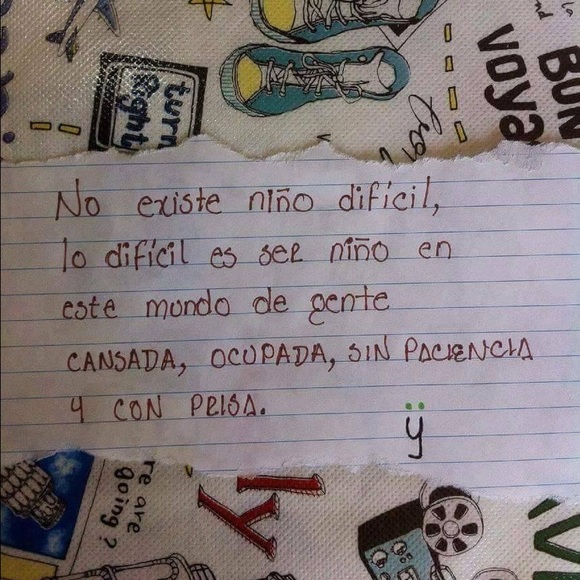 BON
voya
turn
Right
No existe niño difícil,
lo difícil es ser niño en
este mundo de gente
CANSADA, OCUPADA, SIN PACIENCIA
Y CON PRISA.
ÿ
re are
going?
ly